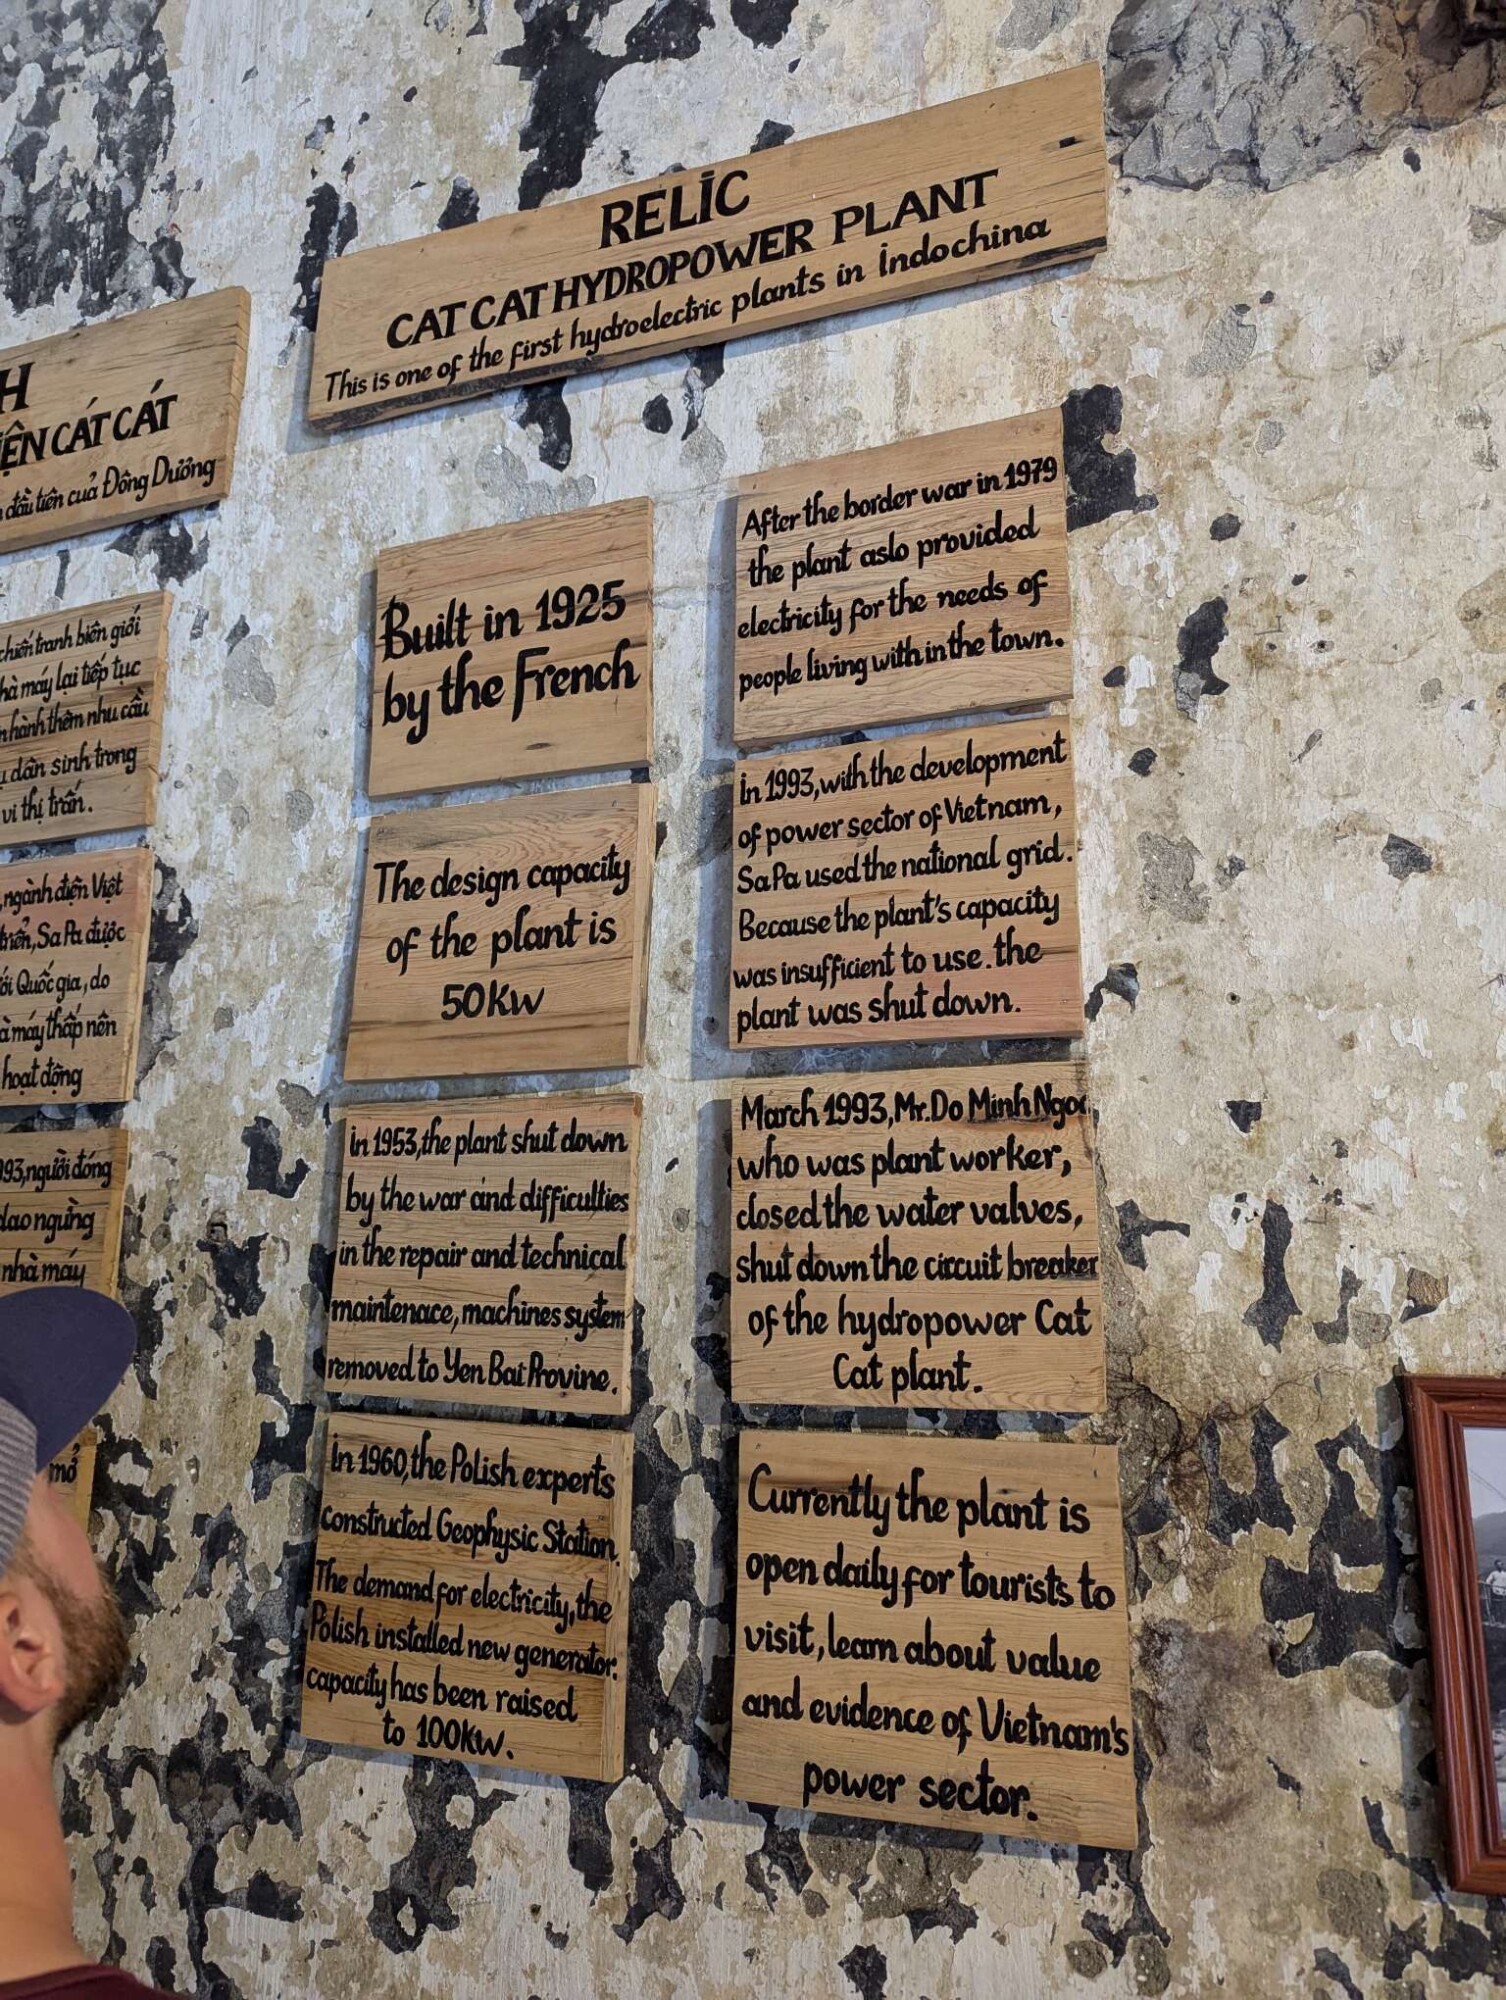 H
ỆN CÁT CÁT
đầu tiên cuả Đông Dương
chiến tranh biên giới
hà máy lại tiếp tục
hành thêm nhu cầu
dân sinh trong
vi thị trấn.
ngành điện Việt
triển, Sa Pa được
ới Quốc gia, do
à máy thấp nên
hoạt động
93, người đóng
dao ngừng
nhà máy
mở
RELIC
CAT CAT HYDROPOWER PLANT
This is one of the first hydroelectric plants in Indochina
Built in 1925
by the French
The design capacity
of the plant is
50KW
in 1953, the plant shut down
by the war and difficulties
in the repair and technical
maintenace, machines system
removed to Yen Bai Provine.
in 1960, the Polish experts
constructed Geophysic Station.
The demand for electricity, the
Polish installed new generator.
capacity has been raised
to 100KW.
After the border war in 1979
the plant aslo provided
electricity for the needs of
people living with in the town.
in 1993, with the development
of power sector of Vietnam,
SaPa used the national grid.
Because the plant's capacity
was insufficient to use. the
plant was shut down.
March 1993, Mr. Do Minh Ngoc
who was plant worker,
closed the water valves,
shut down the circuit breaker
of the hydropower Cat
Cat plant.
Currently the plant is
open daily for tourists to
visit, learn about value
and evidence of Vietnam's
power sector.